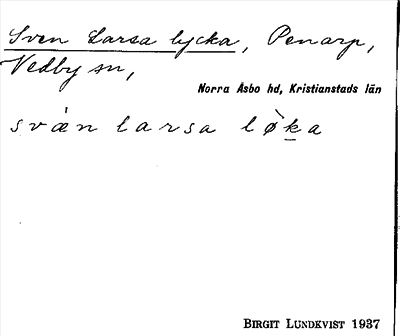 Sven Larsa lycka, Penarp,
Vedby sn,
Norra Åsbo hd, Kristianstads län
svæ̀n larsa lø̀ḵa
BIRGIT LUNDKVIST 1937